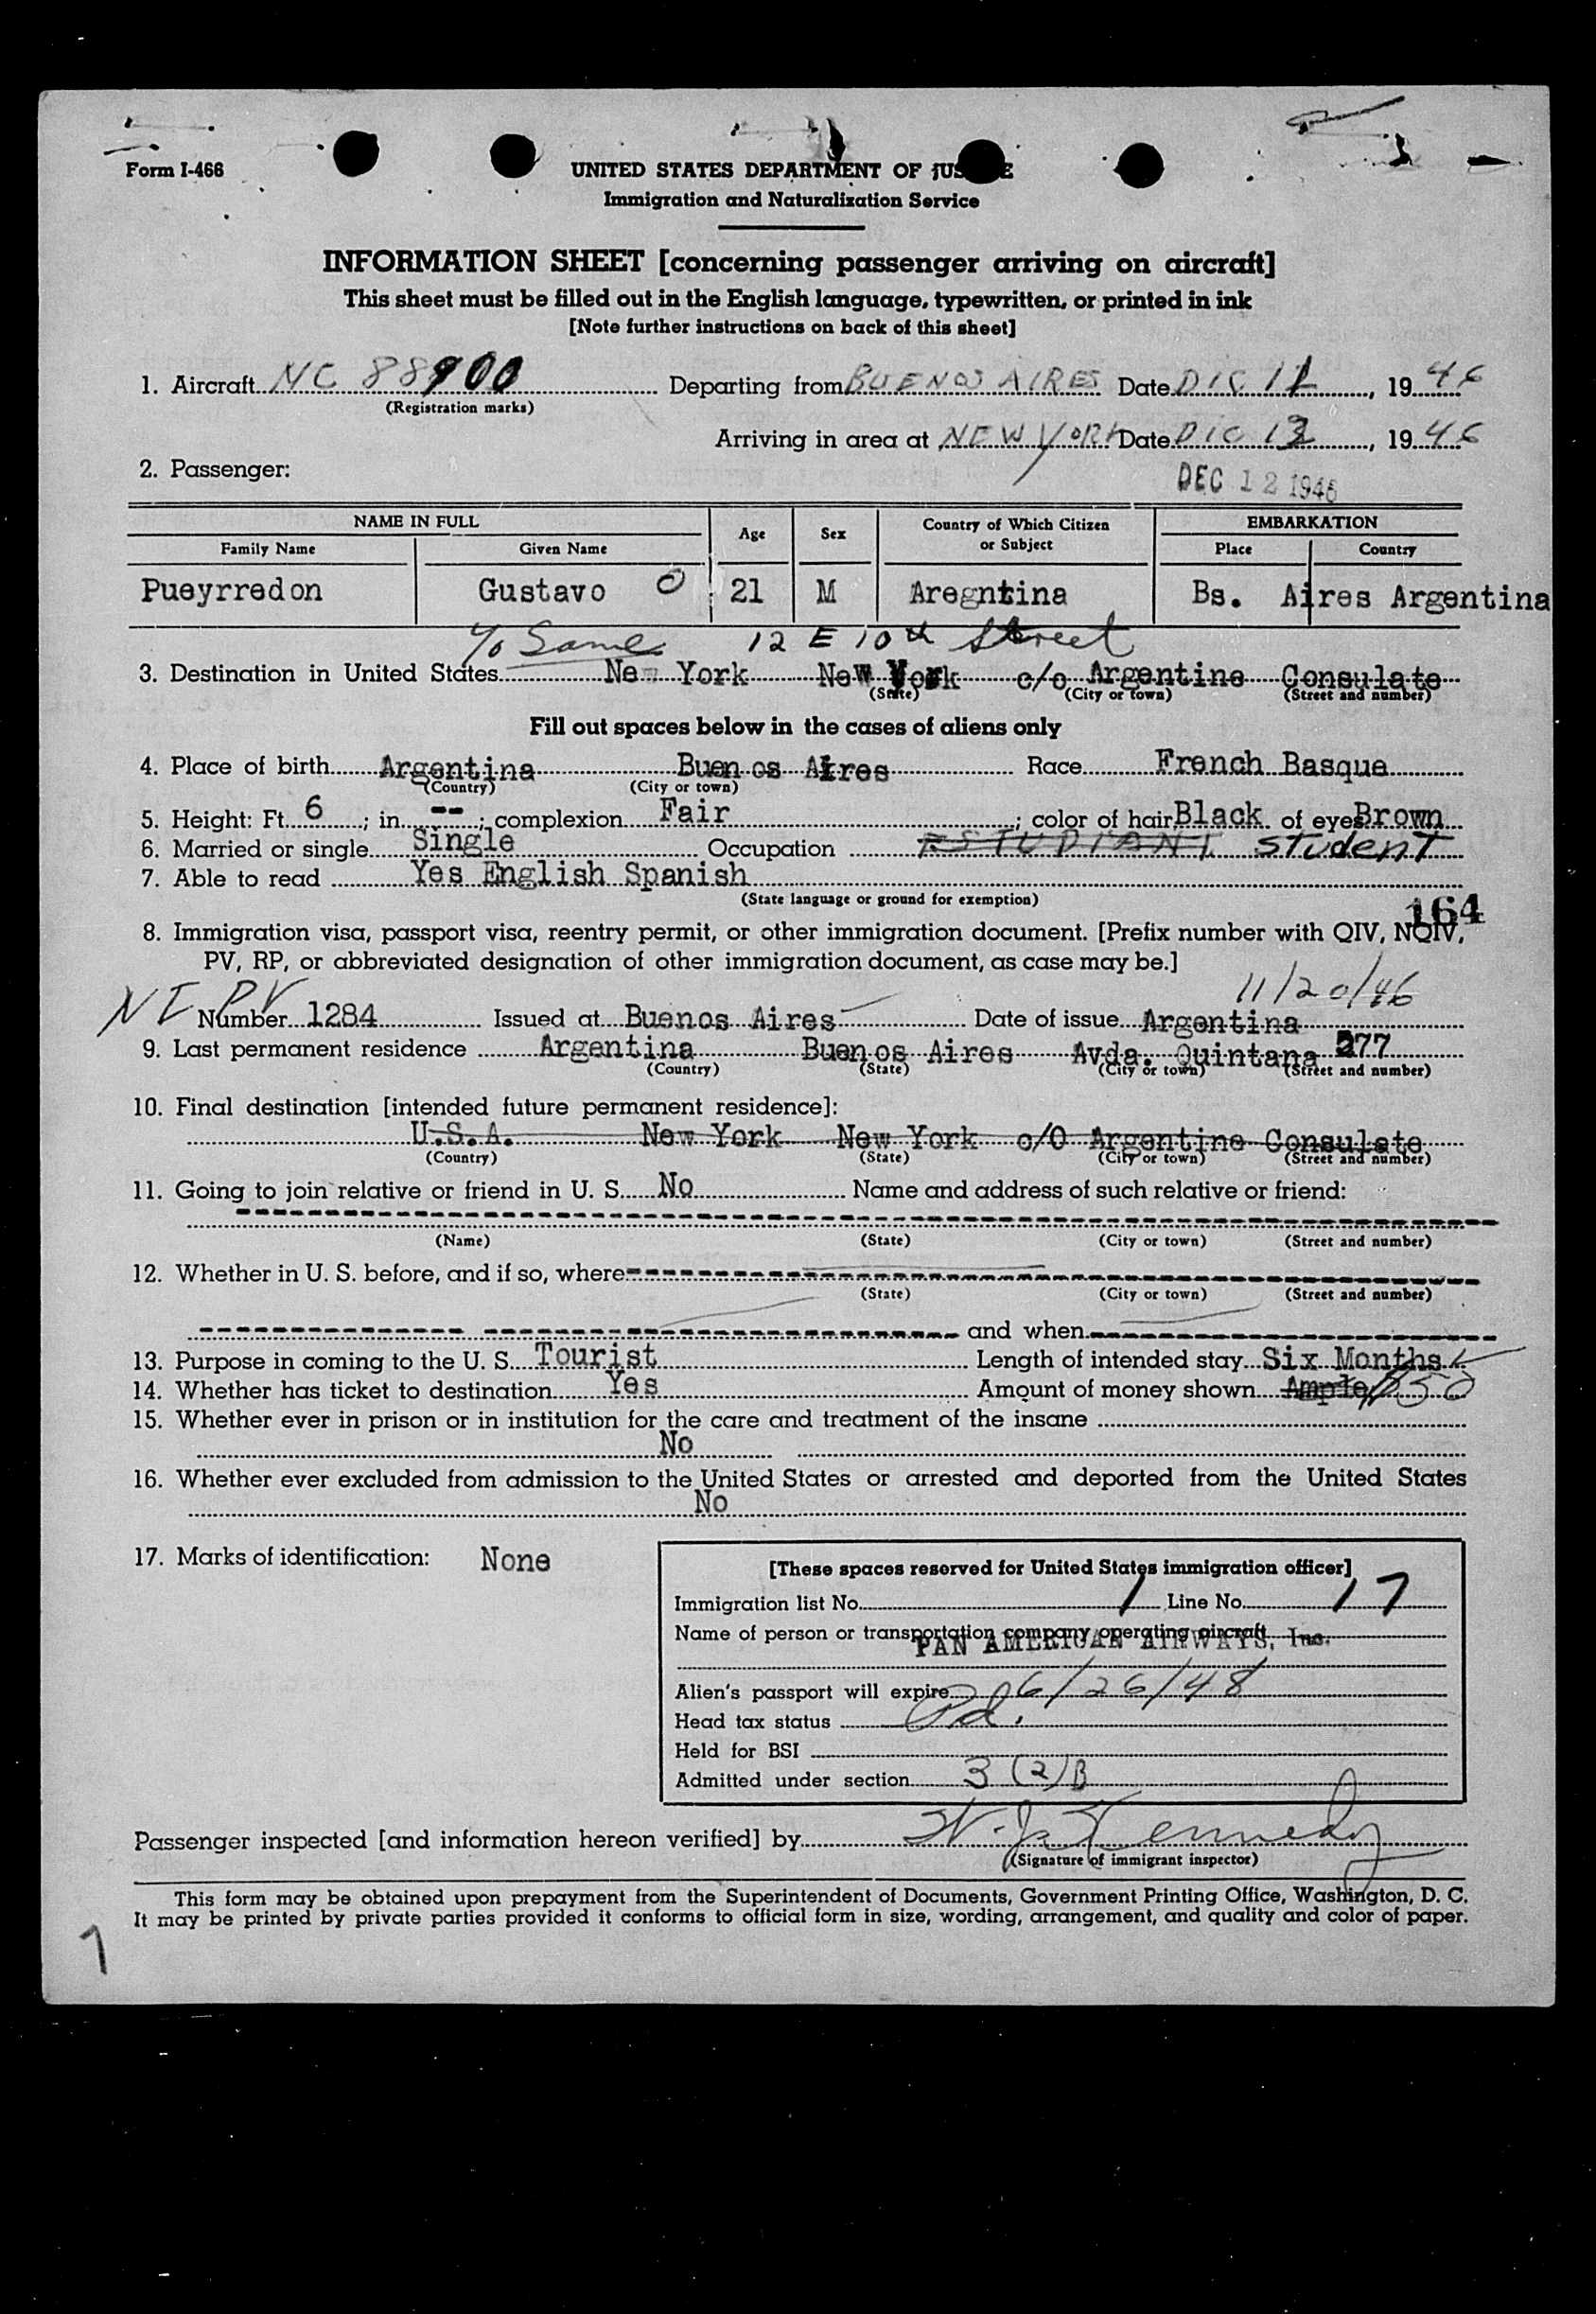 Form I-466
UNITED STATES DEPARTMENT OF JUSTICE
Immigration and Naturalization Service
INFORMATION SHEET [concerning passenger arriving on aircraft]
This sheet must be filled out in the English language, typewritten, or printed in ink
[Note further instructions on back of this sheet]
1. Aircraft NC 88900 Departing from BUENOS AIRES Date DIC 11, 19 46
(Registration marks)
Arriving in area at NEW YORK Date DIC 12, 19 46
2. Passenger:
DEC 12 1946
NAME IN FULL Age Sex Country of Which Citizen or Subject EMBARKATION
Family Name Given Name Place Country
Pueyrredon Gustavo O 21 M Aregntina Bs. Aires Argentina
c/o Same 12 E 10th Street
3. Destination in United States New York New York c/o Argentine Consulate
(State) (City or town) (Street and number)
Fill out spaces below in the cases of aliens only
4. Place of birth Argentina Buenos Aires Race French Basque
(Country) (City or town)
5. Height: Ft. 6; in. --; complexion Fair; color of hair Black of eyes Brown
6. Married or single Single Occupation ESTUDIANT student
7. Able to read Yes English Spanish
(State language or ground for exemption)
164
8. Immigration visa, passport visa, reentry permit, or other immigration document. [Prefix number with QIV, NQIV,
PV, RP, or abbreviated designation of other immigration document, as case may be.]
11/20/46
NI PV Number 1284 Issued at Buenos Aires Date of issue Argentina
9. Last permanent residence Argentina Buenos Aires Avda. Quintana 277
(Country) (State) (City or town) (Street and number)
10. Final destination [intended future permanent residence]:
U.S.A. New York New York c/O Argentine Consulate
(Country) (State) (City or town) (Street and number)
11. Going to join relative or friend in U. S. No Name and address of such relative or friend:
(Name) (State) (City or town) (Street and number)
12. Whether in U. S. before, and if so, where
(State) (City or town) (Street and number)
and when
13. Purpose in coming to the U. S. Tourist Length of intended stay Six Months
14. Whether has ticket to destination Yes Amount of money shown Ample 150
15. Whether ever in prison or in institution for the care and treatment of the insane
No
16. Whether ever excluded from admission to the United States or arrested and deported from the United States
No
17. Marks of identification: None
[These spaces reserved for United States immigration officer]
Immigration list No. 1 Line No. 17
Name of person or transportation company operating aircraft
PAN AMERICAN AIRWAYS, Inc.
Alien's passport will expire 6/26/48
Head tax status Pd.
Held for BSI
Admitted under section 3 (2) B
Passenger inspected [and information hereon verified] by W. J. Kennedy
(Signature of immigrant inspector)
This form may be obtained upon prepayment from the Superintendent of Documents, Government Printing Office, Washington, D. C.
It may be printed by private parties provided it conforms to official form in size, wording, arrangement, and quality and color of paper.
7